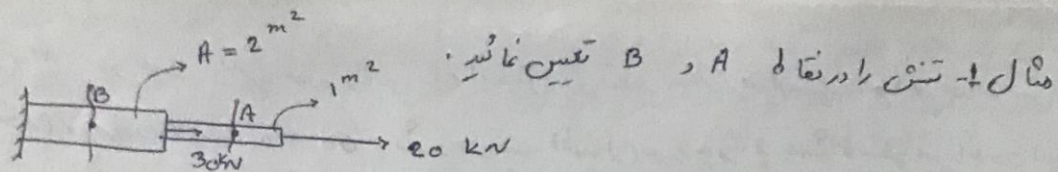 مثال 1- تنش را در نقاط A و B تعیین نمائید.
A = 2 m²
1 m²
B
A
30 kN
20 kN